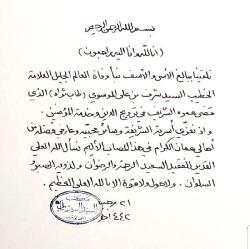 بسم الله الرحمن الرحيم
(إنا لله وإنا إليه راجعون)
تلقينا ببالغ الأسى والأسف نبأ وفاة العالم الجليل العلامة
الخطيب السيد شرف بن علي الموسوي (طاب ثراه) الذي
قضى عمره الشريف في ترويج الدين وخدمة المؤمنين.
وإذ نعزي أسرته الشريفة وسائر محبيه وعارفي فضله من
أهالي عمان الكرام في هذا المصاب الأليم نسأل الله العلي
القدير للفقيد السعيد الرحمة والرضوان ولذويه الصبر و
السلوان. ولا حول ولا قوة إلا بالله العلي العظيم.
٢١ رجب
١٤٤٢ هـ